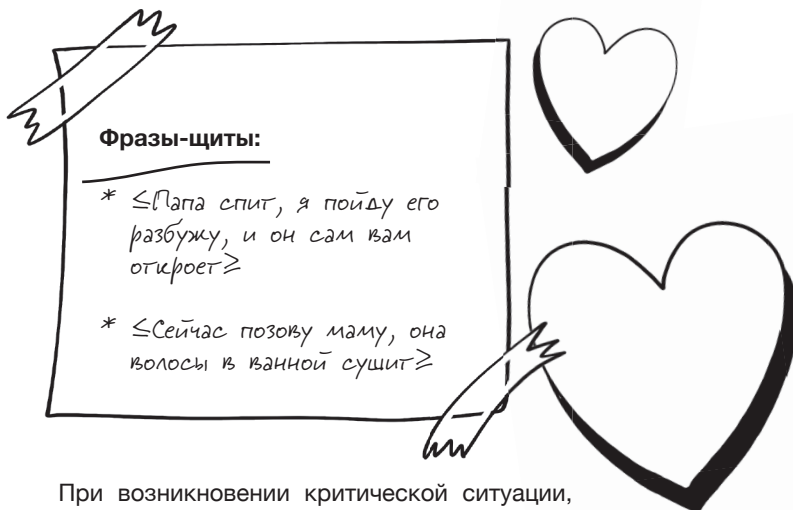 Фразы-щиты:
* ≤Папа спит, я пойду его
разбужу, и он сам вам
откроет≥
* ≤Сейчас позову маму, она
волосы в ванной сушит≥
При возникновении критической ситуации,